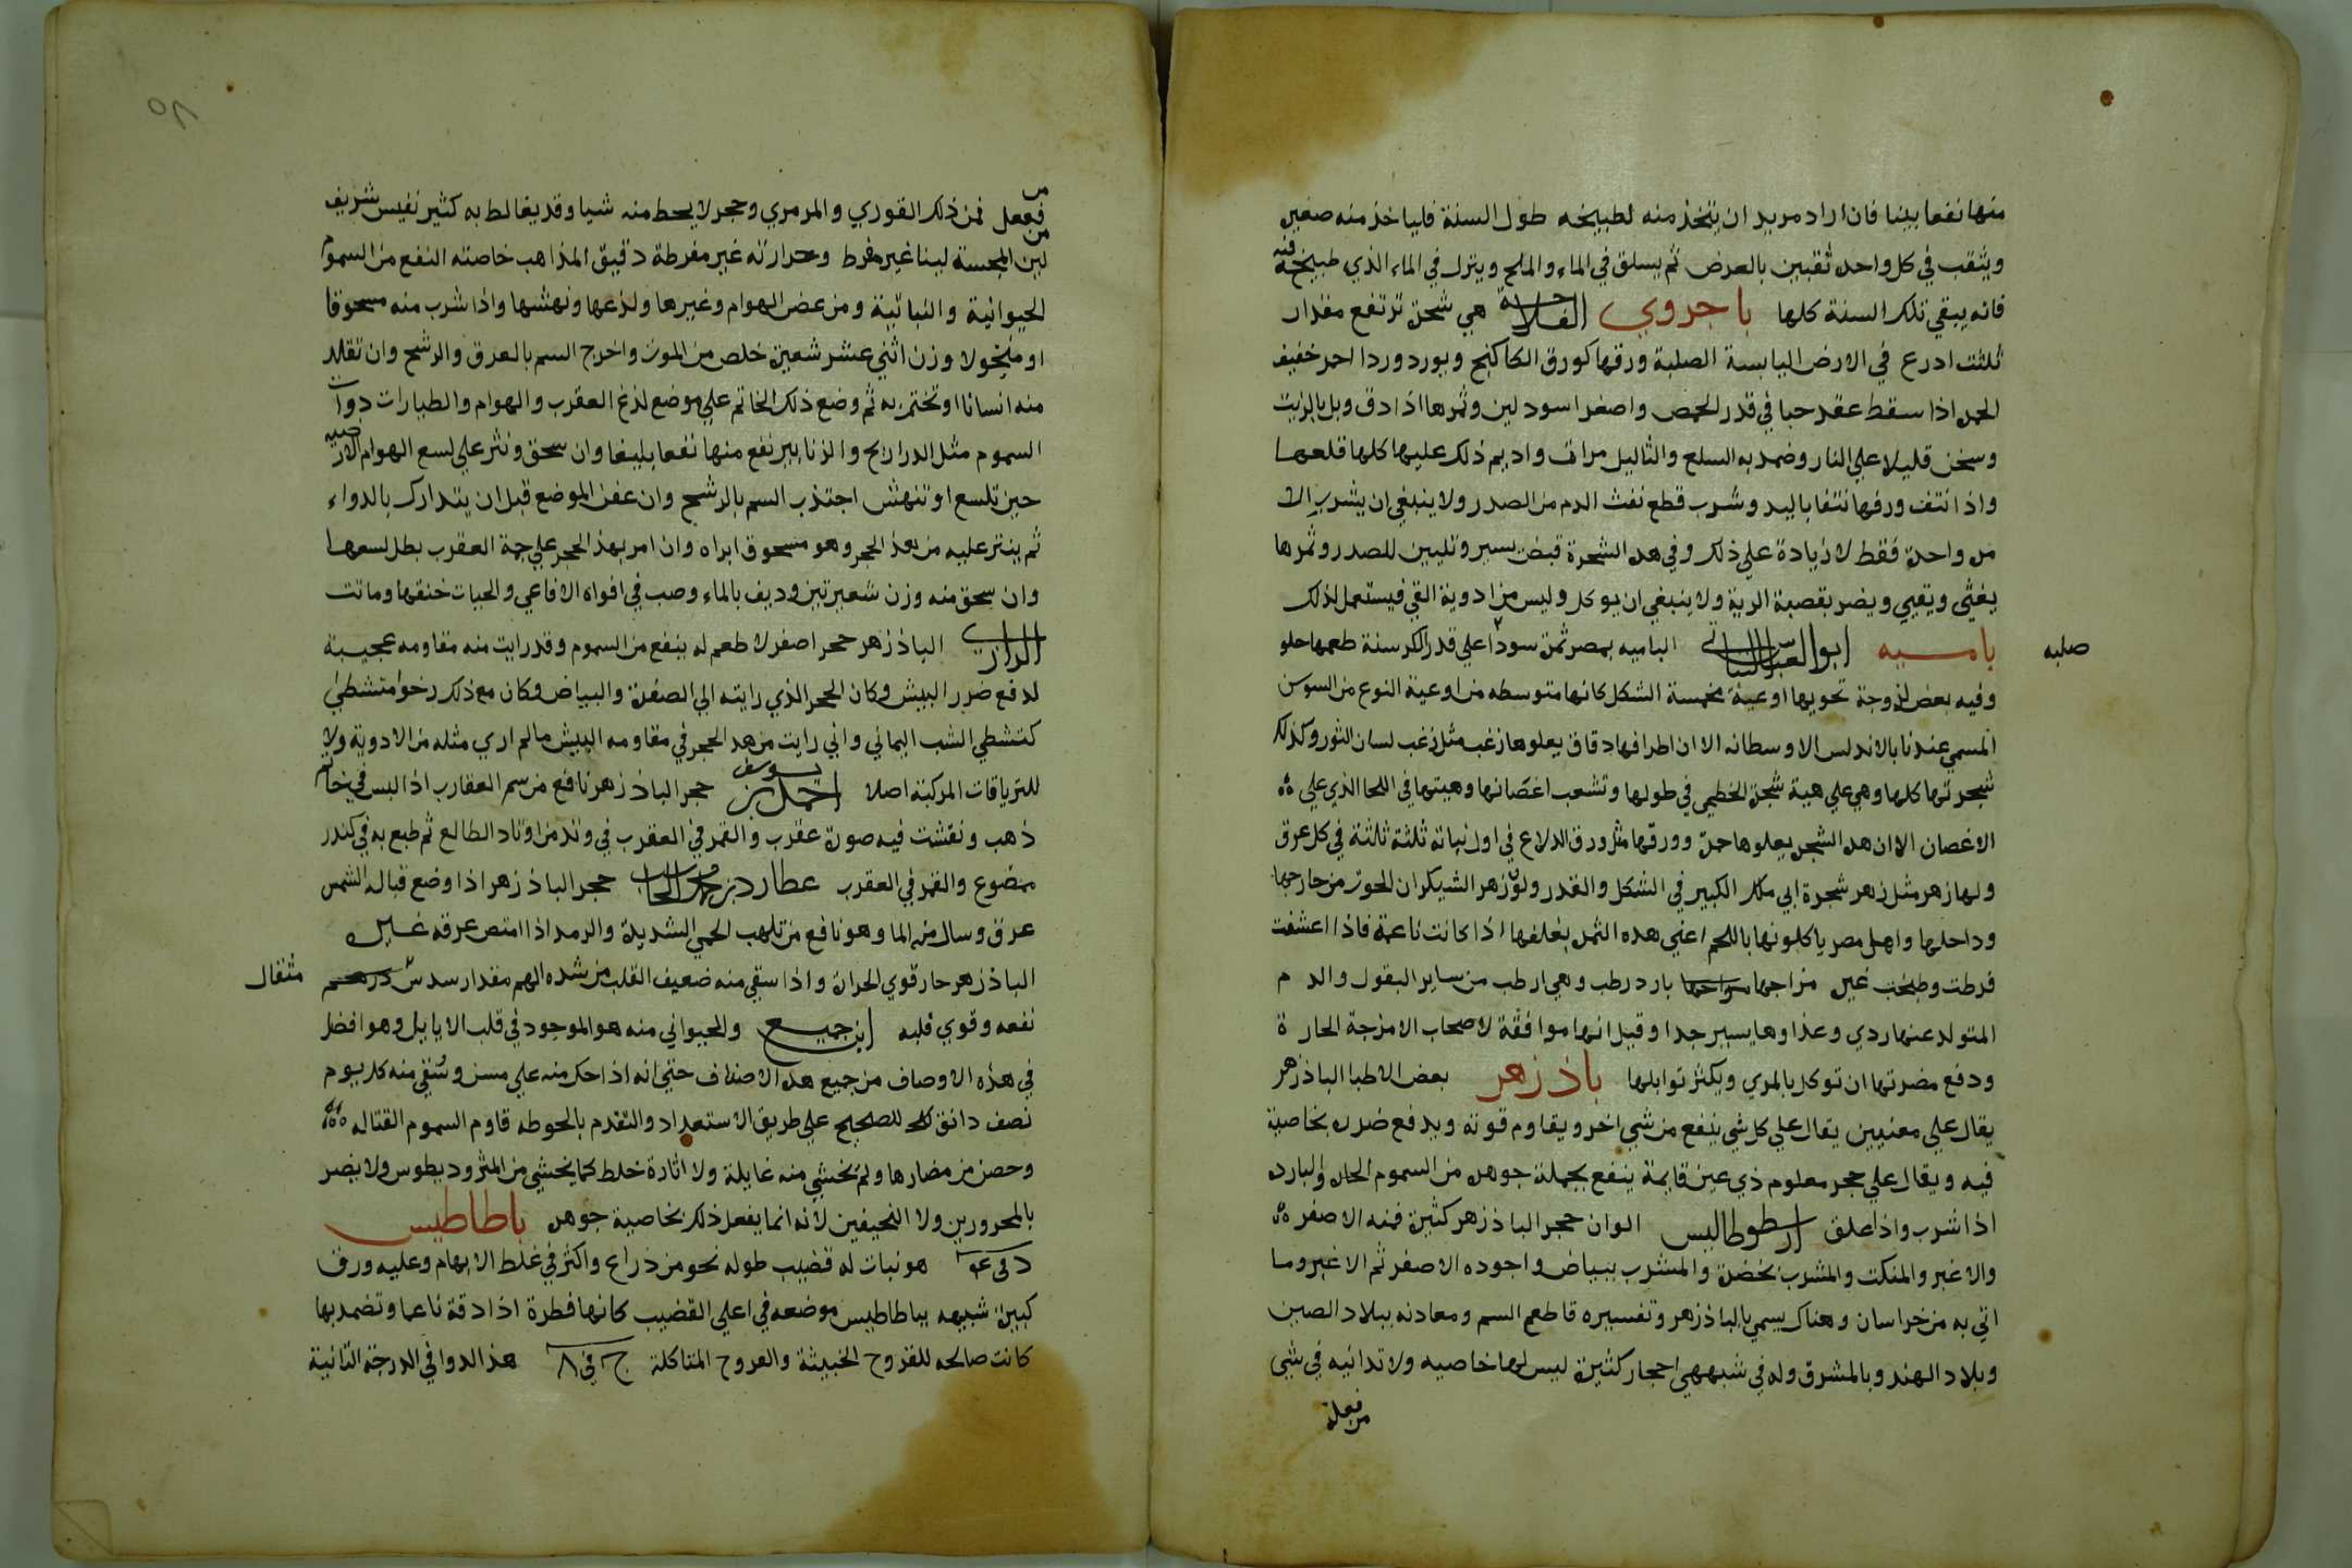 منها نفعا بينا فان اراد مريد ان يتخذ منه لطبيخه طول السنة فلياخذ منه صغير
ويثقب في كل واحد ثقبين بالعرض ثم يسلق في الماء والملح ويترك في الماء الذي طبخ فيه
فانه يبقي تلك السنة كلها باجروي الفلاحة هي شجرة ترتفع مقدار
ثلثت ادرع في الارض اليابسة الصلبة ورقها كورق الكاكنج ويورد وردا احمر خفيف
الحمرة اذا سقط عقد حبا في قدر الحمص واصغر اسود لين وثمرها اذا دق وبل بالزيت
وسخن قليلا علي النار وضمد به السلع والثاليل مرات واديم ذلك عليها كلها قلعها
واذا نتف ورقها نتفا باليد وشرب قطع نفث الدم من الصدر ولا ينبغي ان يشرب الا
مرة واحدة فقط لا زيادة علي ذلك وفي هده الشجرة قبض يسير وتليين للصدر وثمرها
يغثي ويقيي ويضر بقصبة الرية ولا ينبغي ان يوكل وليس من ادوية القي فيستعمل لذلك
باميه ابو العباس النباتي الباميه بمصر ثمرة سودا علي قدر الكرسنة طعمها حلو
صلبه
وفيه بعض لزوجة تحويها اوعية مخمسة الشكل كانها متوسطه من اوعية النوع من السوسن
المسمي عندنا بالاندلس الاوسطانه الا ان اطرافها دقاق يعلوها زغب مثل زغب لسان الثور وكذلك
شجرتها كلها وهي علي هية شجرة الخطمي في طولها وتشعب اغصانها وهيتها في اللحا الذي علي
الاغصان الا ان هده الشجرة يعلوها حمرة وورقها مثل ورق الدلاع في اول نباته ثلثة ثلثة في كل عرق
ولها زهر مثل زهر شجرة ابي ملك الكبير في الشكل والقدر ولون زهر الشيكران الحوري من خارجها
وداخلها واهل مصر ياكلونها باللحم اعني هده الثمرة بغلفها اذا كانت ناعمة فاذا اعشفت
فرطت وطبخت غيره مزاجها بارد رطب وهي ارطب من ساير البقول والد م
المتولد عنها ردي وغذاوها يسير جدا وقيل انها موافقة لاصحاب الامزجة الحار ة
ودفع مضرتها ان توكل بالمري ويكثر توابلها باذزهر بعض الاطبا الباذزهر
يقال علي معنيين يقال علي كل شي ينفع من شي اخر ويقاوم قوته ويدفع ضرره بخاصية
فيه ويقال علي حجر معلوم ذي عين قايمة ينفع بجملة جوهره من السموم الحارة والبارده
اذا شرب واذا علق ارسطوطاليس الوان حجر الباذزهر كثيرة فمنه الاصفر
والاغبر والمنكت والمشرب بخضرة والمشرب ببياض واجوده الاصفر ثم الاغبر وما
اتي به من خراسان وهناك يسمي بالباذزهر وتفسيره قاطع السم ومعادنه ببلاد الصين
وبلاد الهند وبالمشرق وله في شبهه احجار كثيرة ليس لها خاصيه ولا تدانيه في شي
من فعله
٥٨
من
فعله فمن ذلك القوري والمرمري وحجر لا يحط منه شيا وقد يغالط به كثير نفيس شريف
لين المجسة لينا غير مفرط وحرارته غير مفرطة دقيق المذاهب خاصته النفع من السموم
الحيوانية والنباتية ومن عض الهوام وغيرها ولذعها ونهشها واذا شرب منه مسحوقا
او منخولا وزن اثني عشر شعيرة خلص من الموت واخرج السم بالعرق والرشح وان تقلد
منه انسانا او تختم به ثم وضع ذلك الخاتم علي موضع لذغ العقرب والهوام والطيارات دوات
السموم مثل الدراريح والزنابير نفع منها نفعا بليغا وان سحق ونثر علي لسع الهوام الارضيه
حين تلسع او تنهش اجتذب السم بالرشح وان عفن الموضع قبل ان يتدارك بالدواء
ثم ينثر عليه من هذا الحجر وهو مسحوق ابراه وان امر بهذا الحجر علي حمة العقرب بطل لسعها
وان سحق منه وزن شعيرتين وديف بالماء وصب في افواه الافاعي والحيات خنقها وماتت
الرازي الباذزهر حجر اصفر لا طعم له ينفع من السموم وقد رايت منه مقاومه عجيبة
لدفع ضرر البيش وكان الحجر الذي رايته الي الصفرة والبياض وكان مع ذلك رخوا متشطي
كتشطي الشب اليماني واني رايت من هذا الحجر في مقاومه البيش ما لم اري مثله من الادوية ولا
للترياقات المركبة اصلا احمد بن يوسف حجر الباذزهر نافع من سم العقارب اذا لبس في خاتم
ذهب ونقشت فيه صورة عقرب والقمر في العقرب في وتد من اوتاد الطالع ثم طبع به في كندر
ممضوع والقمر في العقرب عطارد بن محمد الحاسب حجر الباذزهر اذا وضع قبالة الشمس
عرق وسال منه الما وهو نافع من تلهب الحمي الشديدة والرمد اذا امتص عرقه غيره
الباذزهر حار قوي الحرارة واذا سقي منه ضعيف القلب من شده الهم مقدار سدس درهم
مثقال
نفعه وقوي قلبه ابن جميع والحيواني منه هو الموجود في قلب الايايل وهو افضل
في هذه الاوصاف من جميع هذه الاصناف حتي انه اذا حك منه علي مسن وسقي منه كل يوم
نصف دانق للصحيح علي طريق الاستعداد والتقدم بالحوطه قاوم السموم القتاله
وحصن من مضارها ولم تخشي منه غايلة ولا اثارة خلط كما يخشي من المثروديطوس ولا يضر
بالمحرورين ولا النحيفين لانه انما يفعل ذلك بخاصية جوهره باطاطيس
هو نبات له قضيب طوله نحو من ذراع واكثر في غلظ الابهام وعليه ورق
كبيرة شبيهه بباطاطيس موضعه في اعلي القضيب كانها فطرة اذا دقة ناعما وتضمد بها
كانت صالحه للقروح الخبيثة والقروح المتاكلة ج في ٨ هذا الدوا في الدرجة الثانية